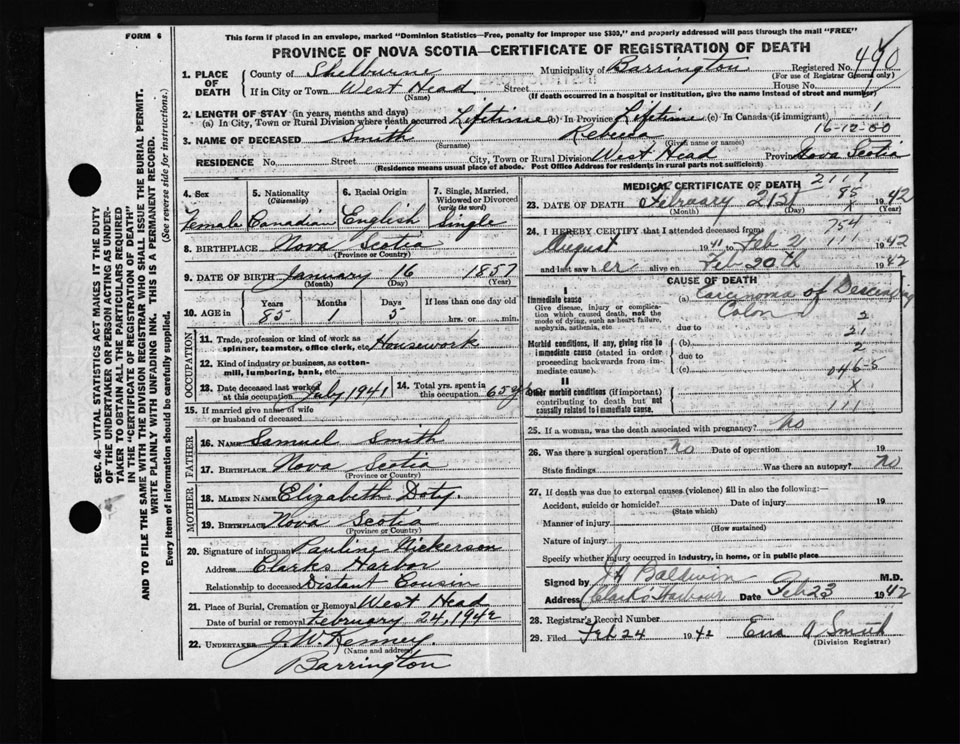 FORM 6
This form if placed in an envelope, marked "Dominion Statistics—Free, penalty for improper use $300," and properly addressed will pass through the mail "FREE"
PROVINCE OF NOVA SCOTIA—CERTIFICATE OF REGISTRATION OF DEATH
SEC. 46—VITAL STATISTICS ACT MAKES IT THE DUTY
OF THE UNDERTAKER OR PERSON ACTING AS UNDER-
TAKER TO OBTAIN ALL THE PARTICULARS REQUIRED
IN THE "CERTIFICATE OF REGISTRATION OF DEATH"
AND TO FILE THE SAME WITH THE DIVISION REGISTRAR WHO SHALL ISSUE THE BURIAL PERMIT.
WRITE PLAINLY WITH UNFADING INK. THIS IS A PERMANENT RECORD.
Every item of information should be carefully supplied. (See reverse side for instructions.)
1. PLACE OF DEATH County of Shelburne Municipality of Barrington Registered No. 490
(For use of Registrar General only)
If in City or Town West Head Street House No.
(Name) (If death occurred in a hospital or institution, give the name instead of street and number)
2. LENGTH OF STAY (in years, months and days)
(a) In City, Town or Rural Division where death occurred Lifetime (b) In Province Lifetime (c) In Canada (if immigrant) 1
16-12-00
3. NAME OF DECEASED Smith Rebecca
(Surname) (Given name or names)
RESIDENCE No. Street City, Town or Rural Division West Head Province Nova Scotia
(Residence means usual place of abode. Post Office Address for residents in rural parts not sufficient)
4. Sex Female
5. Nationality (Citizenship) Canadian
6. Racial Origin English
7. Single, Married, Widowed or Divorced (write the word) Single
8. BIRTHPLACE Nova Scotia
(Province or Country)
9. DATE OF BIRTH January 16 1857
(Month) (Day) (Year)
10. AGE in Years 85 Months 1 Days 5 If less than one day old
hrs. or min.
OCCUPATION
11. Trade, profession or kind of work as spinner, teamster, office clerk, etc. Housework
12. Kind of industry or business, as cotton-mill, lumbering, bank, etc.
13. Date deceased last worked at this occupation July 1941
14. Total yrs. spent in this occupation 65
15. If married give name of wife or husband of deceased
FATHER
16. NAME Samuel Smith
17. BIRTHPLACE Nova Scotia
(Province or Country)
MOTHER
18. MAIDEN NAME Elizabeth Doty
19. BIRTHPLACE Nova Scotia
(Province or Country)
20. Signature of informant Pauline Nickerson
Address Clarks Harbor
Relationship to deceased Distant Cousin
21. Place of Burial, Cremation or Removal West Head
Date of burial or removal February 24, 1942
22. UNDERTAKER J. W. Kenney
(Name and address)
Barrington
MEDICAL CERTIFICATE OF DEATH
2111
85
x
23. DATE OF DEATH February 21 1942
(Month) (Day) (Year)
24. I HEREBY CERTIFY that I attended deceased from
754
111
August 41 to Feb 21 1942
and last saw her alive on Feb 20th 1942
CAUSE OF DEATH
I
Immediate cause
Give disease, injury or complication which caused death, not the mode of dying, such as heart failure, asphyxia, asthenia, etc
(a) Carcinoma of Descending
Colon
due to 2
21
Morbid conditions, if any, giving rise to immediate cause (stated in order proceeding backwards from immediate cause).
(b) 2
due to
(c) 046-5
II
Other morbid conditions (if important) contributing to death but not causally related to immediate cause.
x
111
25. If a woman, was the death associated with pregnancy? No
26. Was there a surgical operation? No Date of operation 19
State findings Was there an autopsy? No
27. If death was due to external causes (violence) fill in also the following:—
Accident, suicide or homicide? Date of injury 19
(State which)
Manner of injury
(How sustained)
Nature of injury
Specify whether injury occurred in industry, in home, or in public place
Signed by Baldwin M.D.
Address Clarks Harbour Date Feb 23 1942
28. Registrar's Record Number
29. Filed Feb 24 1942 A Smith
(Division Registrar)